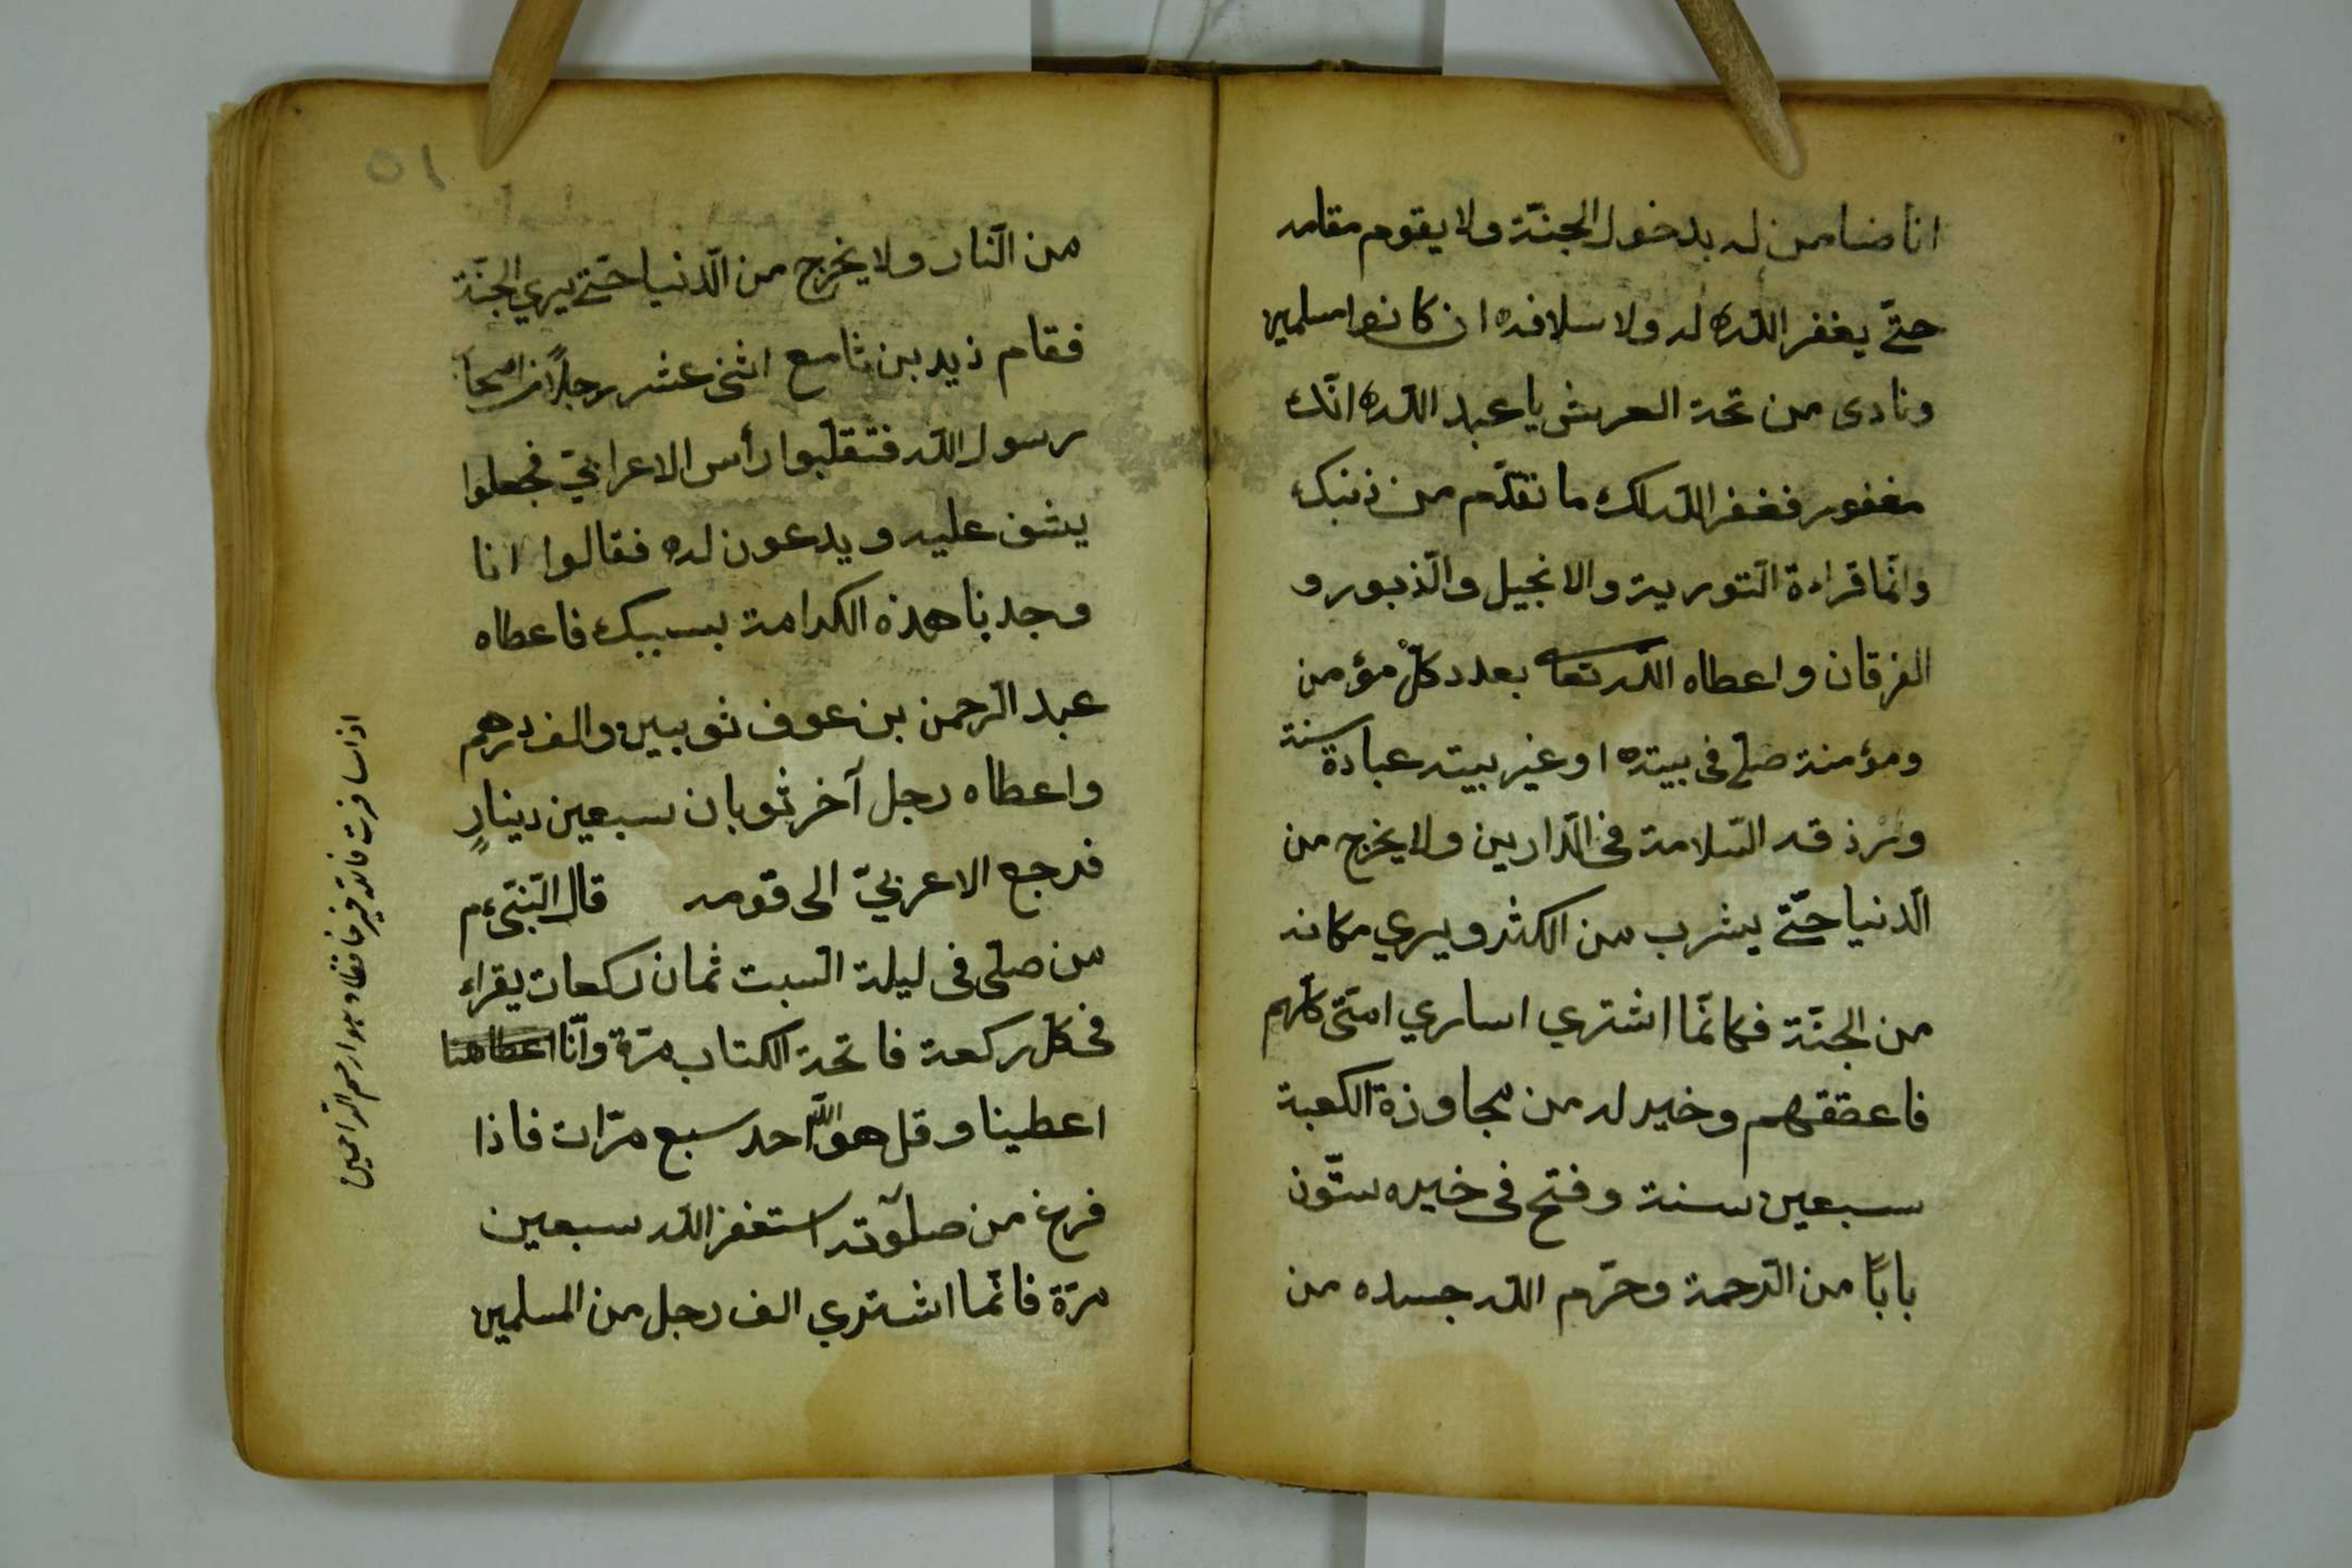 انا ضامن له بدخول الجنّة ولا يقوم مقامه
حتّى يغفر اللّه له ولاسلافه ان كانوا مسلمين
ونادى من تحة العرش يا عبد اللّه انّك
مغفور فغفر اللّه لك ما تقدّم من ذنبك
وانّما قراءة التّورية والانجيل والذّبور و
الفرقان واعطاه اللّه تعا بعدد كلّ مؤمن
ومؤمنة صلّى فى بيته او غير بيته عبادة سنة
ورزقه السّلامة فى الدّارين ولا يخرج من
الدّنيا حتّى يشرب من الكثر ويري مكانه
من الجنّة فكانّما اشتري اساري امّتى كلّهم
فاعتقهم وخير له من مجاوزة الكعبة
سبعين سنة وفتح فى خيره ستّون
بابًا من الرّحمة وحرّم اللّه جسده من
من النّار ولا يخرج من الدّنيا حتّى يري الجنّة
فقام ذيد بن ثامع اثنى عشر رجلاً من اصحا
رسول اللّه فتقلّبوا رأس الاعرابيّ فجعلوا
يثنى عليه ويدعون له فقالوا انا
وجدنا هذه الكرامة بسببك فاعطاه
عبد الرّحمن بن عوف ثوبين والف درهم
واعطاه رجل آخر ثوبان سبعين دينارٍ
فرجع الاعربيّ الى قومه قال النّبىّ عم
من صلّى فى ليلة السّبت ثمان ركعات يقراء
فى كلّ ركعة فاتحة الكتاب مرّة وانّا اعطاهنا
اعطينا وقل هو اللّه احد سبع مرّات فاذا
فرغ من صلوته استغفر اللّه سبعين
مرّة فانّما اشتري الف رجل من المسلمين
اذا سافرت فاللّه خير حافظا وهو ارحم الرّاحمين
٥١